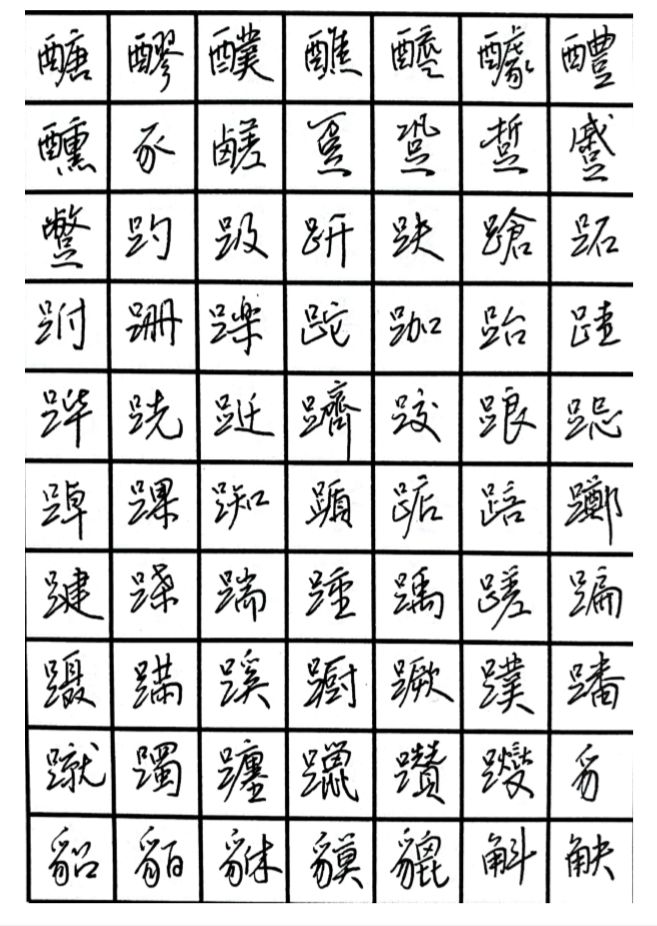 醣醪醭醮醯醵醴
醺豕鹾趸跫踅蹙
蹩趵趿趼趺蹌跖
跗跚跞跎跏跆跬
跸跣跹躋跤踉跽
踔踝踟踬踮踣躑
踺蹀踹踵踽蹉蹁
蹑蹒蹊蹰蹶蹼蹯
蹴躅躔躐躜躞豸
貂貊貅貘貔斛觖